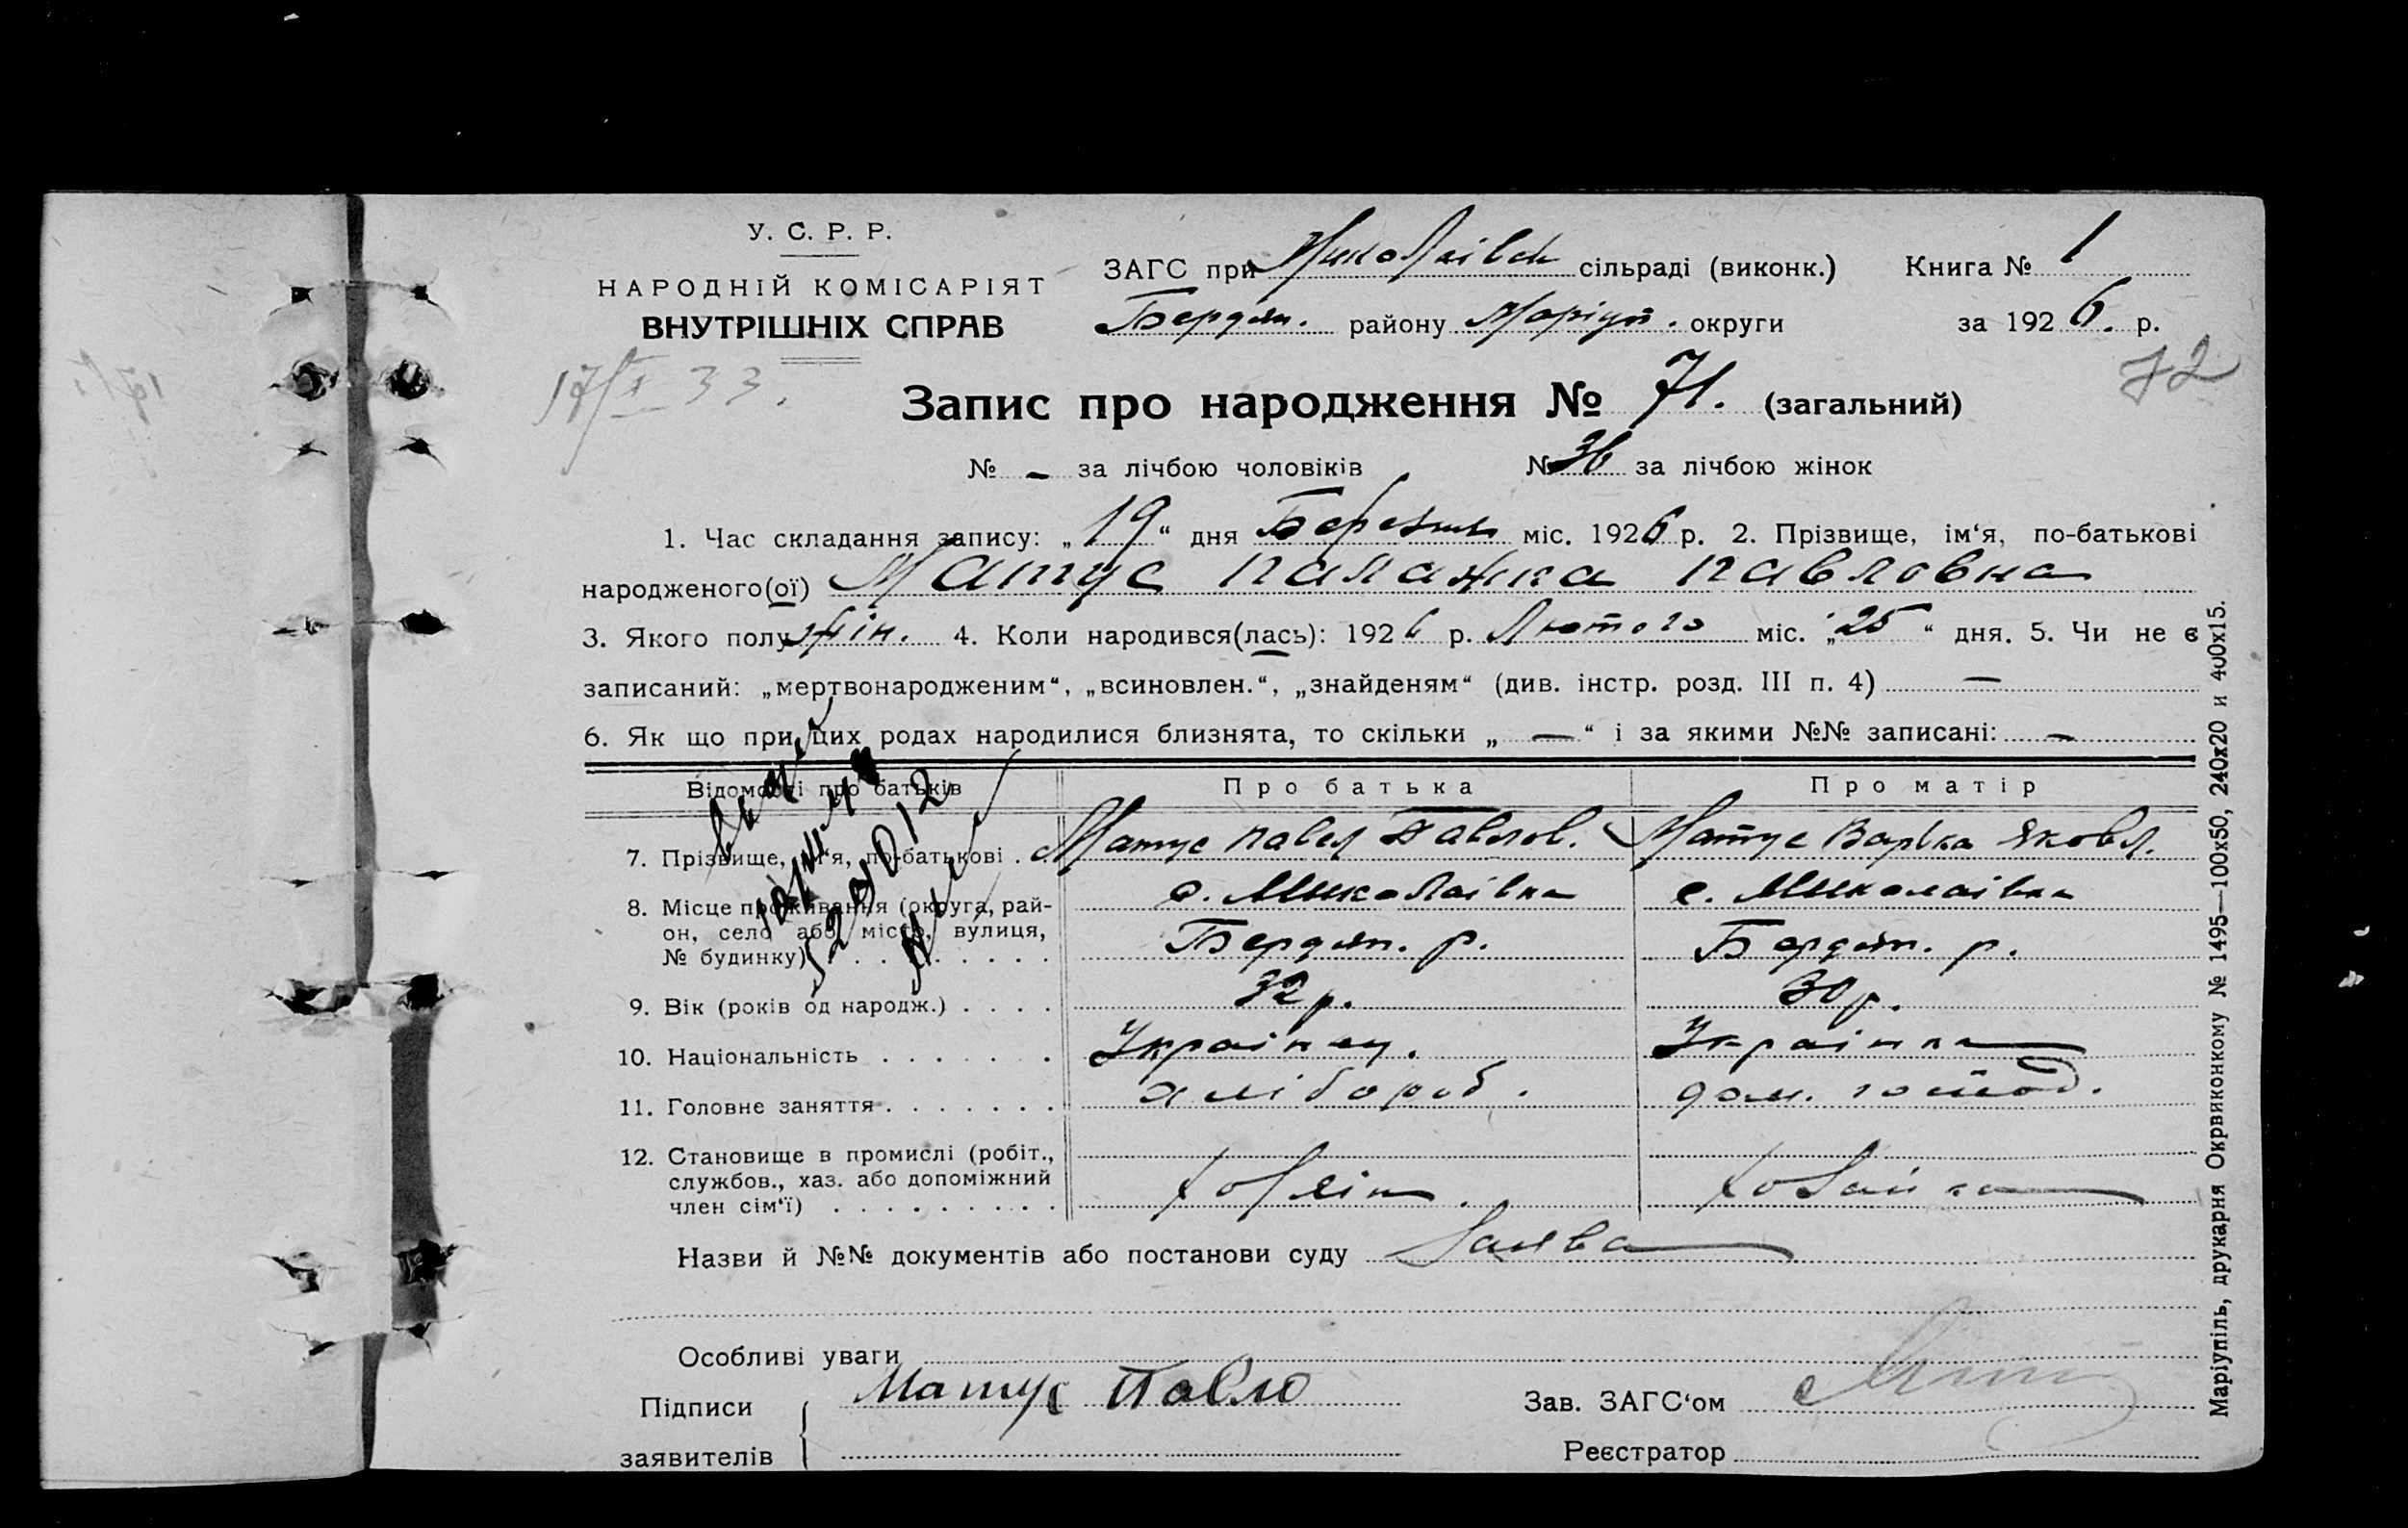 У. С. Р. Р.
НАРОДНІЙ КОМІСАРІЯТ
ВНУТРІШНІХ СПРАВ
17/X 33.
ЗАГС при Миколаівск сільраді (виконк.) Книга № 1
Бердян. району Маріуп. округи за 1926. р.
72
Запис про народження № 71. (загальний)
№ — за лічбою чоловіків № 36 за лічбою жінок
1. Час складання запису: „19“ дня Березня міс. 1926 р. 2. Прізвище, ім‘я, по-батькові
народженого(ої) Матус Палажка Павловна
3. Якого полу жін. 4. Коли народився(лась): 1926 р. Лютого міс. „25“ дня. 5. Чи не є
записаний: „мертвонародженим“, „всиновлен.“, „знайденям“ (див. інстр. розд. III п. 4) —
6. Як що при цих родах народилися близнята, то скільки „ — “ і за якими №№ записані: —
Відомості про батьків Про батька Про матір
7. Прізвище, ім‘я, по-батькові . Матус Павел Павлов. Матус Варька Яковл.
8. Місце проживання (округа, рай- с. Миколаівка с. Миколаівка
он, село або місто, вулиця, Бердян. р. Бердян. р.
№ будинку) . . . . . . . .
9. Вік (років од народж.) . . . . 32 р. 30 р.
10. Національність . . . . . . . Українец. Українка
11. Головне заняття . . . . . . . хлібороб. дом. господ.
12. Становище в промислі (робіт.,
службов., хаз. або допоміжний
член сім‘ї) . . . . . . . . .
Назви й №№ документів або постанови суду Заява
Особливі уваги
Підписи Матус Павло Зав. ЗАГС‘ом
заявителів Реєстратор
Маріупіль, друкарня Окрвиконкому № 1495—100х50, 240х20 и 400х15.